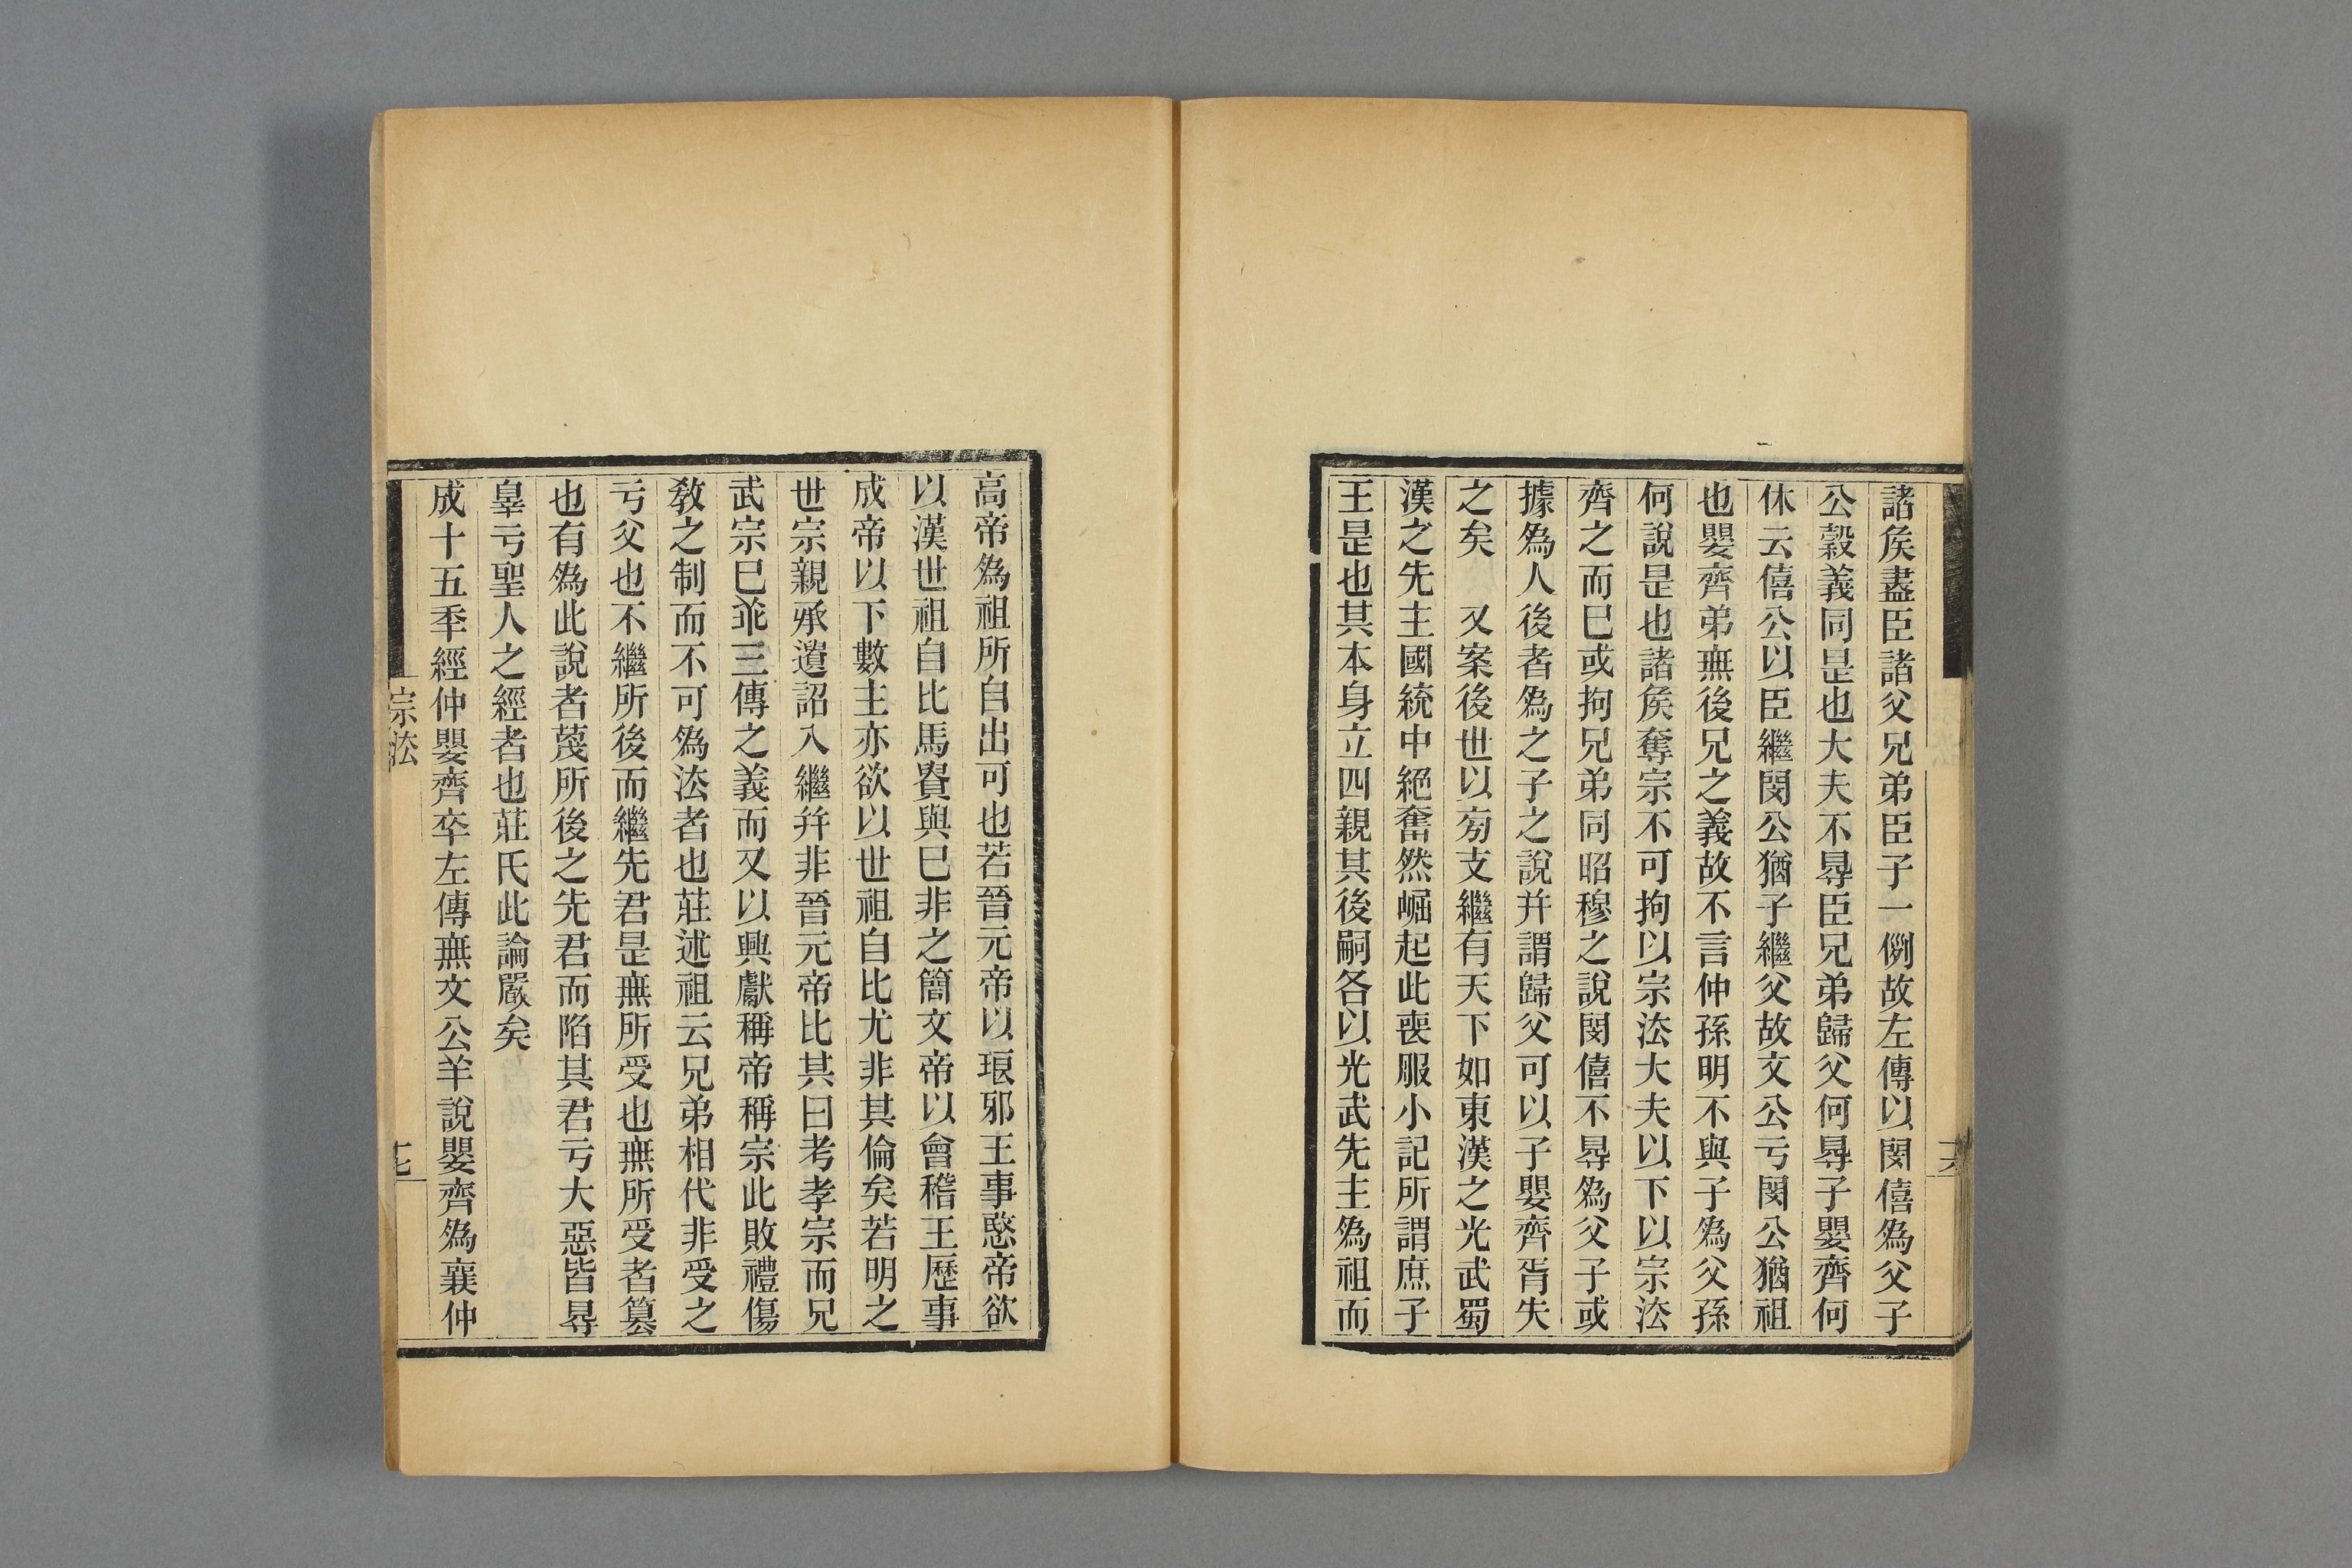 諸矦盡臣諸父兄弟臣子一例故左傳以閔僖爲父子
公穀義同是也大夫不㝵臣兄弟歸父何㝵子嬰齊何
休云僖公以臣繼閔公猶子繼父故文公亏閔公猶祖
也嬰齊弟無後兄之義故不言仲孫明不與子爲父孫
何說是也諸矦奪宗不可拘以宗法大夫以下以宗法
齊之而已或拘兄弟同昭穆之說閔僖不㝵爲父子或
據爲人後者爲之子之說并謂歸父可以子嬰齊胥失
之矣　又案後世以旁支繼有天下如東漢之光武蜀
漢之先主國統中絕奮然崛起此喪服小記所謂庶子
王是也其本身立四親其後嗣各以光武先主爲祖而
六
高帝爲祖所自出可也若晉元帝以琅邪王事愍帝欲
以漢世祖自比馬賨與已非之簡文帝以會稽王歷事
成帝以下數主亦欲以世祖自比尤非其倫矣若明之
世宗親承遺詔入繼幷非晉元帝比其曰考孝宗而兄
武宗已乖三傳之義而又以興獻稱帝稱宗此敗禮傷
教之制而不可爲法者也莊述祖云兄弟相代非受之
亏父也不繼所後而繼先君是無所受也無所受者篡
也有爲此說者蔑所後之先君而陷其君亏大惡皆㝵
辠亏聖人之經者也莊氏此論嚴矣
成十五秊經仲嬰齊卒左傳無文公羊說嬰齊爲襄仲
宗法
七